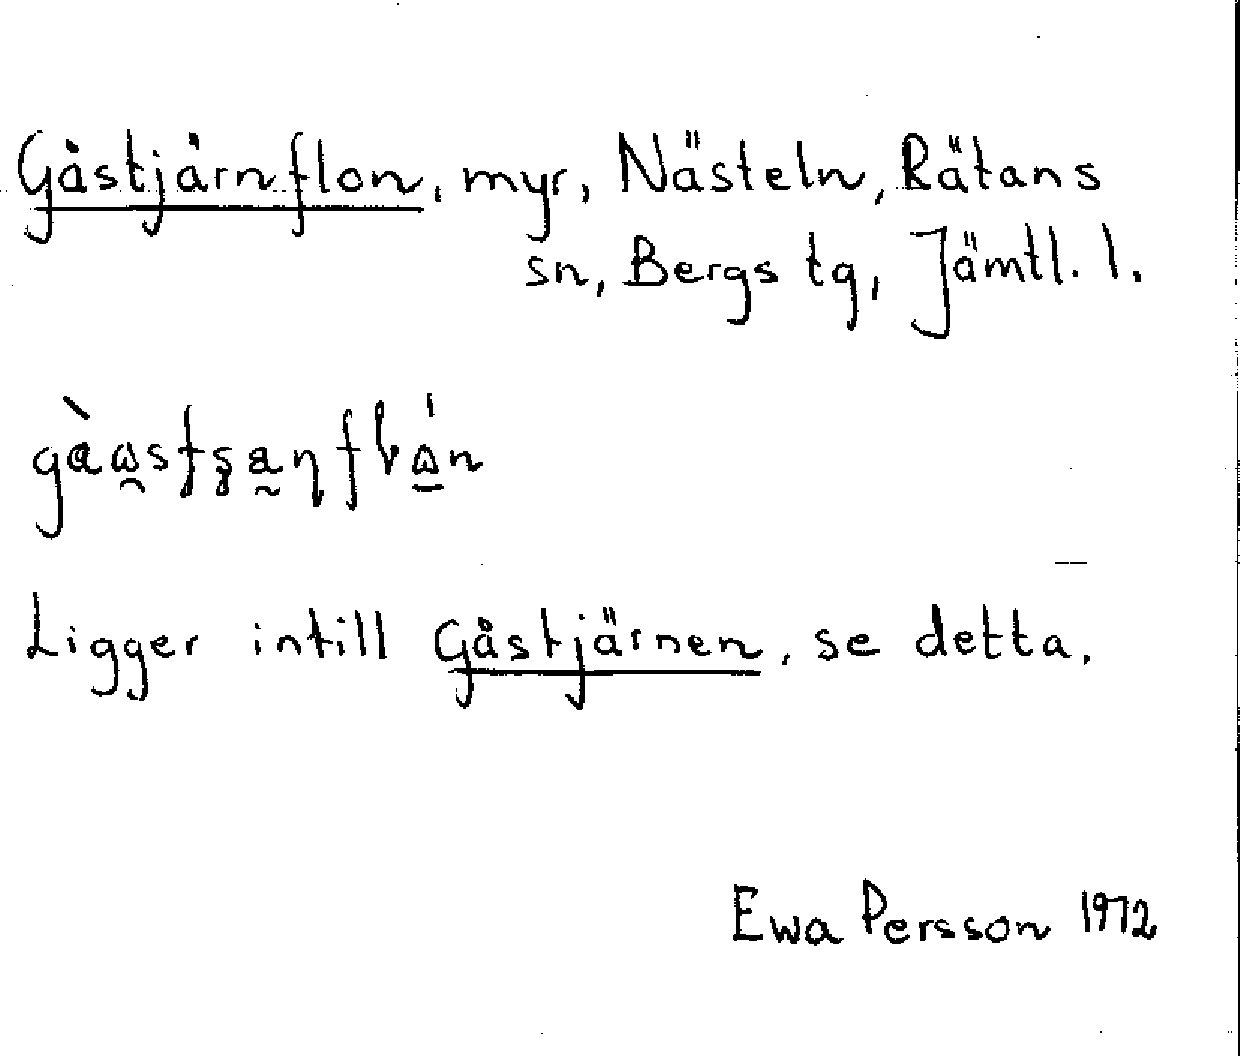 Gåstjärnflon, myr, Nästeln, Rätans
sn, Bergs tg, Jämtl. l.
Ligger intill Gåstjärnen, se detta.
Ewa Persson 1972